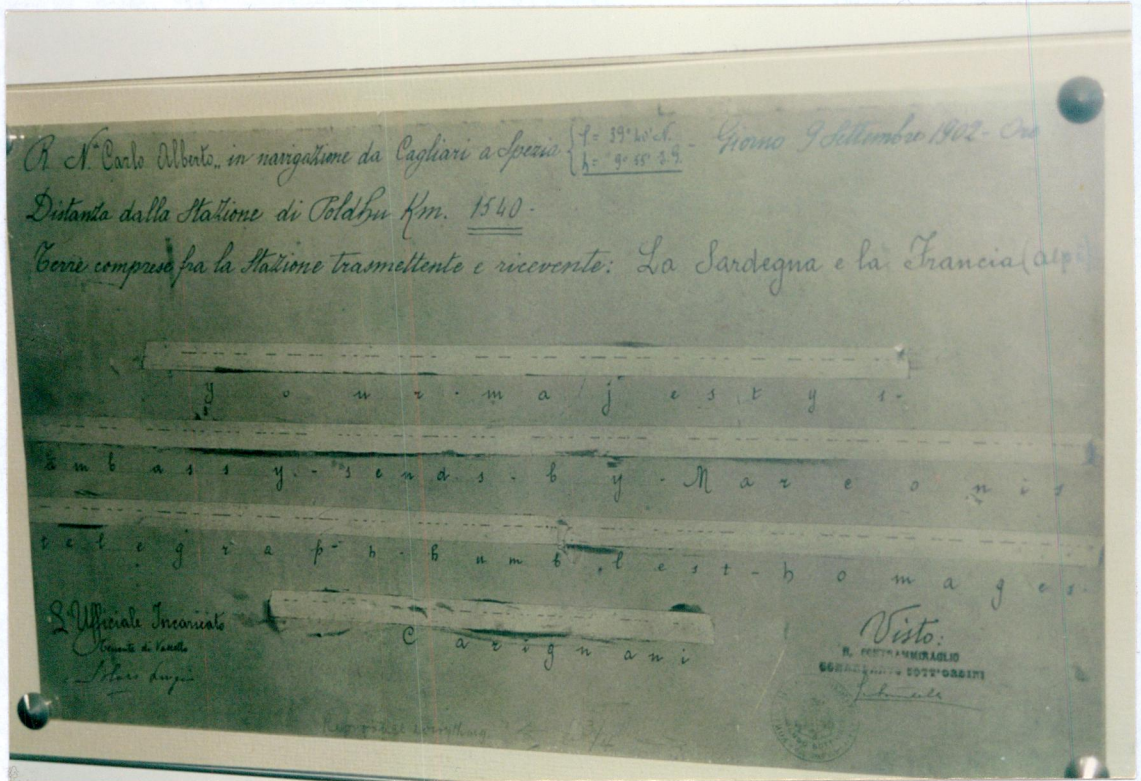 R. N. "Carlo Alberto" in navigazione da Cagliari a Spezia { φ = 39° 20' N. - Giorno 9 Settembre 1902 - Ore
λ = 9° 55' E. G.
Distanza dalla Stazione di Poldhu Km. 1540.
Terre comprese fra la Stazione trasmettente e ricevente: La Sardegna e la Francia (Alpi
y o u r - m a j e s t y s -
e m b a s s y - s e n d s - b y - M a r c o n i s
t e l e g r a p h - h u m b l e s t - h o m a g e s -
C a r i g n a n i
L'Ufficiale Incaricato
Tenente di Vascello
Solari Luigi
Visto:
IL CONTRAMMIRAGLIO
COMANDANTE SOTT'ORDINI